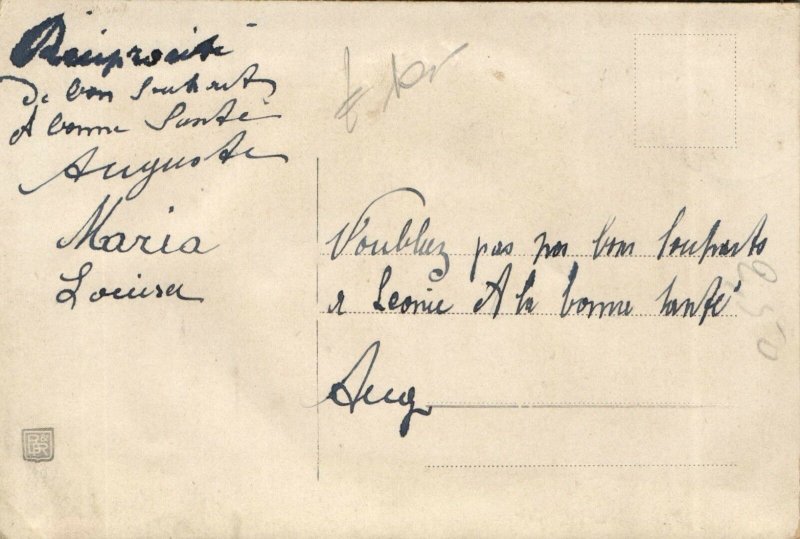 Réciprocité
De bon Souhait
A bonne Santé
Auguste
Maria
Louisa
N'oubliez pas nos bons souhaits
a Leonie A la bonne santé
Aug.